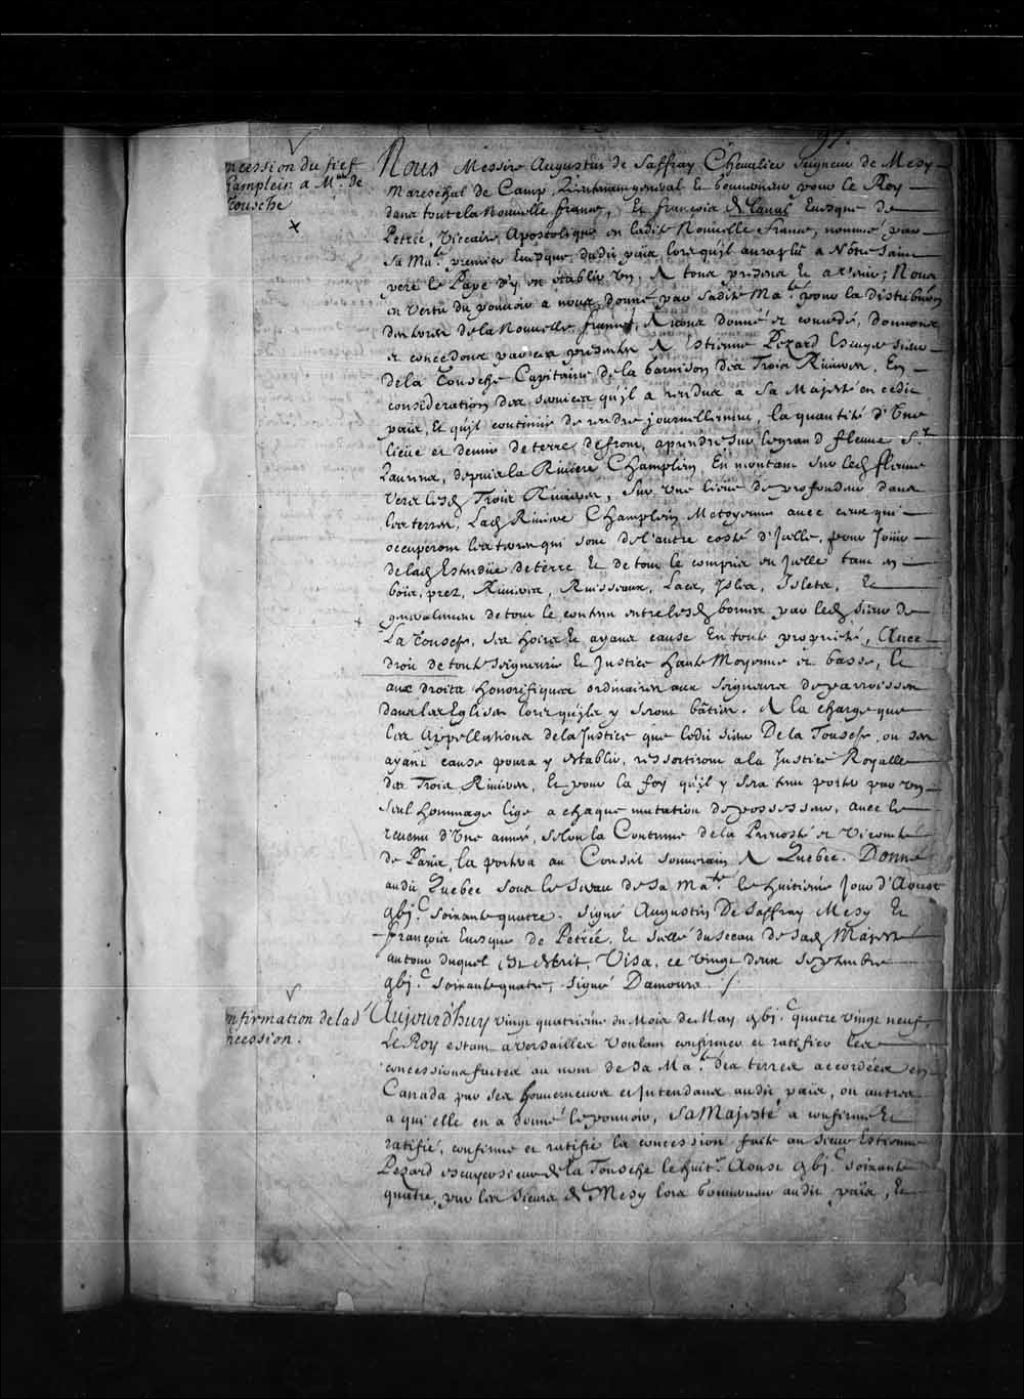 97.
ncession du fief
hamplein a Mr. de
Tousche
Nous Messire Augustin de Saffray Chevalier Seigneur de Mesy
Mareschal de Camp, Lieutenant general et Gouverneur pour le Roy
dans toute la Nouvelle france, Et françois de Laval Evesque de
Petrée, Viccaire Apostolique en ladite Nouvelle France, nommé par
Sa Maté. premier Evesque dudit païs lorsqu'il aura plû a Nôtre Saint
pere le Pape d'y en établir un, A tous presens et a venir; Nous
en vertu du pouvoir a nous donné par Sadite Maté. pour la distribuon
des terres de la Nouvelle france, Avons donné et concedé, donnons
et concedons par ces presentes A Estienne Pezard Escuyer Sieur
de la Tousche Capitaine de la Garnison des Trois Rivieres, En
consideration des services qu'il a rendus a Sa Majesté en cedit
païs, Et qu'il continue de rendre journellement, la quantité d'Une
lieüe et demie de terre de front, a prendre sur le grand fleuve St.
Laurens, depuis la Riviere Champlein En montant sur led fleuve
vers lesd Trois Rivieres, Sur une lieüe de profondeur dans
les terres, Lad Riviere Champlein Metoyenne avec ceux qui
occuperont les terres qui sont de l'autre costé d'Icelle, pour Joüir
de lad Estendüe de terre Et de tout le compris en Icelle tant en
bois, prez, Rivieres, Ruisseaux, Lacs, Isles, Islets, Et
generalement de tout le contenu entre lesd bornes par led sieur de
La Tousche, ses hoirs Et ayans cause En toute proprieté, Avec
droit de toute Seigneurie Et Justice Haute Moyenne et basse, Et
aux droits honorifiques ordinaires aux Seigneurs de parroisses
dans les Eglises lors qu'ils y seront bâties. A la charge que
les Appellations de la Justice que ledit sieur De la Tousche, ou ses
ayans cause poura y establir, ressortiront a la Justice Royalle
des Trois Rivieres, Et pour la foy qu'il y sera tenu porter par un
seul hommage lige a chaque mutation de possesseur, avec le
revenu d'Une année, Selon la Coutume de la Prevosté et Vicomté
de Paris, la portera au Conseil souverain A Quebec. Donné
audit Quebec sous le Sceau de Sa Maté. le huitieme Jour d'Aoust
gbjc. soixante quatre. Signé Augustin De Saffray Mesy Et
François Evesque de Petrée, Et scellé du Sceau de Sad Majesté
autour duquel Est escrit, Visa, ce vingt deux Septembre
gbjc. soixante quatre, Signé Damours.
nfirmation de lad
ncession.
Aujourd'huy vingt quatrieme du Mois de May gbjc. quatre vingt neuf,
Le Roy estant a Versailles voulant confirmer et ratifier les
concessions faites au nom de Sa Maté. des terres accordées en
Canada par ses Gouverneurs et Intendans audit païs, ou autres
a qui elle en a donné le pouvoir, Sa Majesté a confirmé Et
ratifié, confirme et ratifie la concession faite au Sieur Estienne
Pezard escuyer sieur de la Tousche le huite. Aoust gbjc. soixante
quatre, par les Sieurs de Mesy lors Gouverneur audit païs, Et